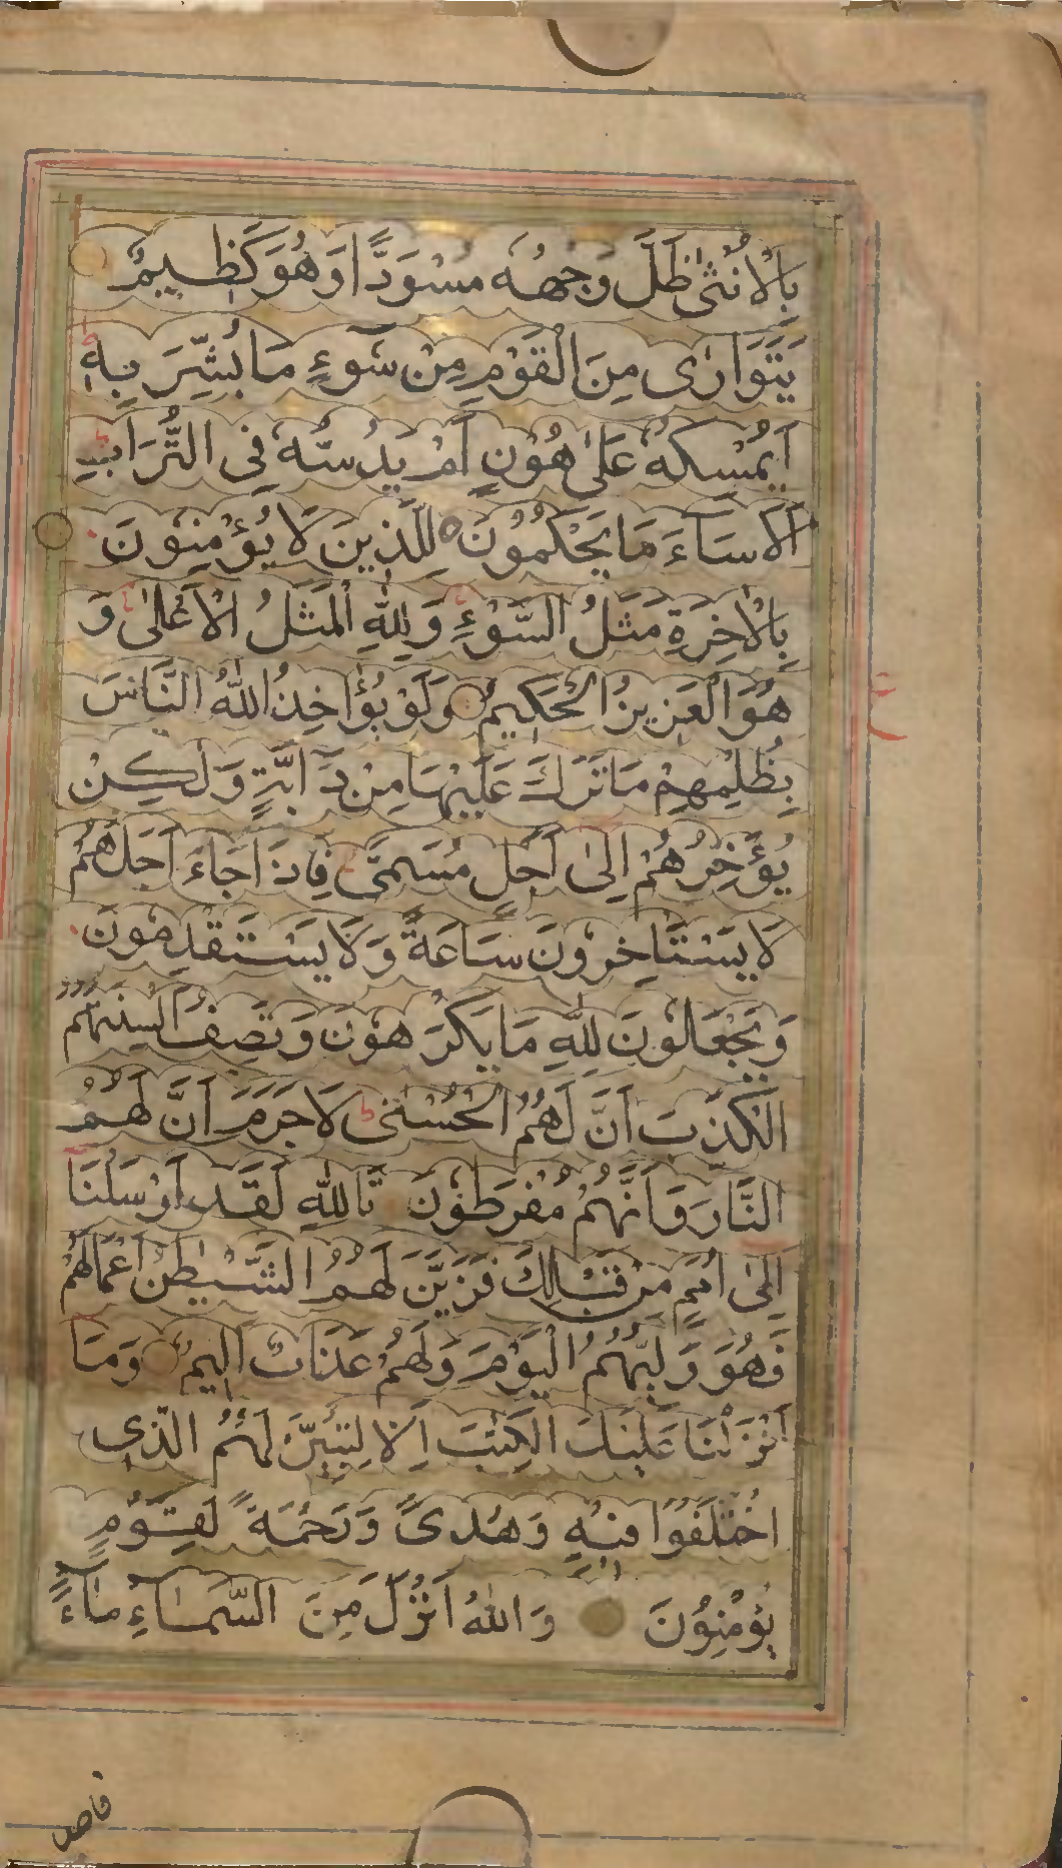 بِالْاُنْثٰى ظَلَّ وَجْهُهٗ مُسْوَدًّا وَهُوَ كَظِيْمٌ
يَتَوَارٰى مِنَ الْقَوْمِ مِنْ سُوْٓءِ مَا بُشِّرَ بِهٖ ط
اَيُمْسِكُهٗ عَلٰى هُوْنٍ اَمْ يَدُسُّهٗ فِى التُّرَابِ ط
اَلَا سَآءَ مَا يَحْكُمُوْنَ لِلَّذِيْنَ لَا يُؤْمِنُوْنَ
بِالْاٰخِرَةِ مَثَلُ السَّوْءِ وَلِلّٰهِ الْمَثَلُ الْاَعْلٰى ط وَ
هُوَ الْعَزِيْزُ الْحَكِيْمُ وَلَوْ يُؤَاخِذُ اللّٰهُ النَّاسَ
بِظُلْمِهِمْ مَا تَرَكَ عَلَيْهَا مِنْ دَآبَّةٍ وَلٰكِنْ
يُؤَخِّرُهُمْ اِلٰى اَجَلٍ مُسَمًّى فَاِذَا جَآءَ اَجَلُهُمْ
لَا يَسْتَاْخِرُوْنَ سَاعَةً وَلَا يَسْتَقْدِمُوْنَ
وَيَجْعَلُوْنَ لِلّٰهِ مَا يَكْرَهُوْنَ وَتَصِفُ اَلْسِنَتُهُمُ
الْكَذِبَ اَنَّ لَهُمُ الْحُسْنٰى ط لَا جَرَمَ اَنَّ لَهُمُ
النَّارَ وَاَنَّهُمْ مُفْرَطُوْنَ تَاللّٰهِ لَقَدْ اَرْسَلْنَا
اِلٰى اُمَمٍ مِنْ قَبْلِكَ فَزَيَّنَ لَهُمُ الشَّيْطٰنُ اَعْمَالَهُمْ
فَهُوَ وَلِيُّهُمُ الْيَوْمَ وَلَهُمْ عَذَابٌ اَلِيْمٌ وَمَا
اَنْزَلْنَا عَلَيْكَ الْكِتٰبَ اِلَّا لِتُبَيِّنَ لَهُمُ الَّذِى
اخْتَلَفُوْا فِيْهِ وَهُدًى وَرَحْمَةً لِقَوْمٍ
يُؤْمِنُوْنَ وَاللّٰهُ اَنْزَلَ مِنَ السَّمَآءِ مَآءً
ع